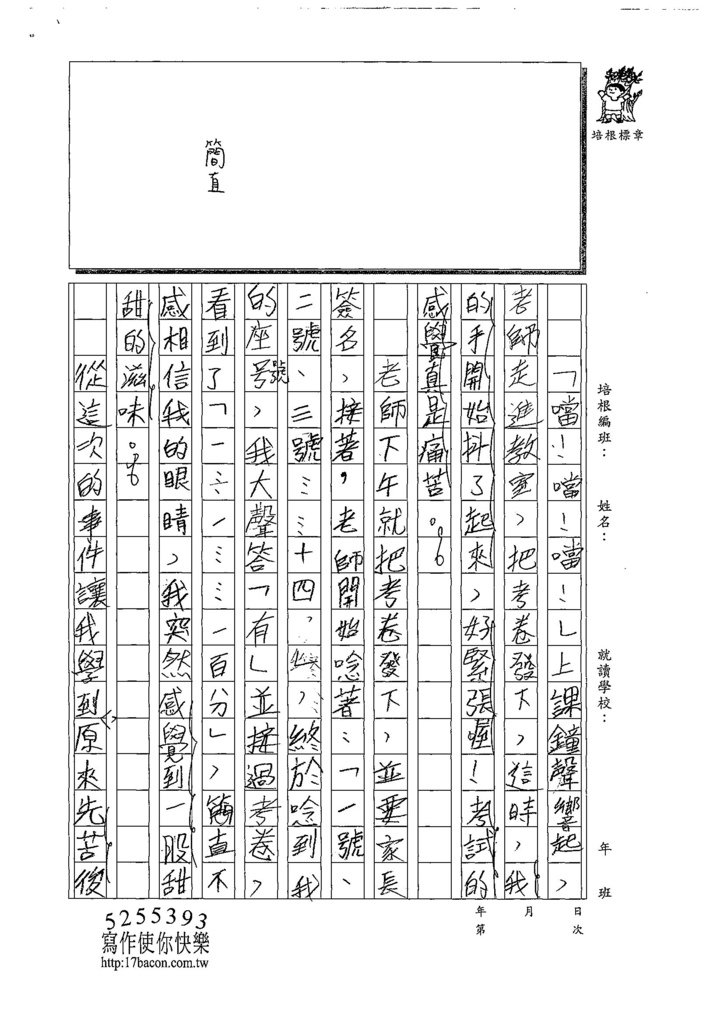 簡直
培根標章
培根編班：　姓名：　就讀學校：　年　班
年　月　日
第　次
「噹！噹！噹！」上課鐘聲響起，
老師走進教室，把考卷發下，這時，我
的手開始抖了起來，好緊張喔！考試的
感覺真是痛苦。
老師下午就把考卷發下，並要家長
簽名，接著，老師開始唸著：「一號、
二號、三號……十四，終於唸到我
的座號，我大聲答「有」並接過考卷，
看到了「一……一……一百分」，簡直不
感相信我的眼睛，我突然感覺到一股甜
甜的滋味。
從這次的事件讓我學到原來先苦後
5255393
寫作使你快樂
http:17bacon.com.tw